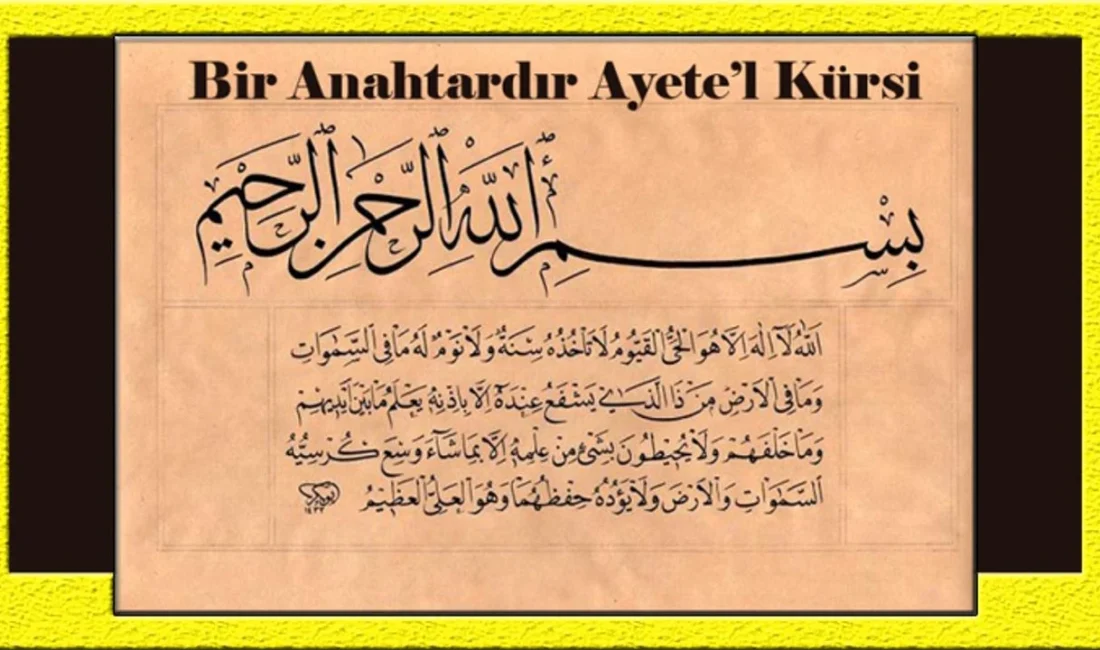 Bir Anahtardır Ayete’l Kürsi
بِسْمِ اللّٰهِ الرَّحْمٰنِ الرَّحِيمِ
اَللّٰهُ لَٓا اِلٰهَ اِلَّا هُوَ الْحَيُّ الْقَيُّومُ لَا تَأْخُذُهُ سِنَةٌ وَلَا نَوْمٌ لَهُ مَا فِى السَّمٰوَاتِ
وَمَا فِى الْاَرْضِ مَنْ ذَا الَّذ۪ي يَشْفَعُ عِنْدَهُٓ اِلَّا بِاِذْنِه۪ يَعْلَمُ مَا بَيْنَ اَيْد۪يهِمْ
وَمَا خَلْفَهُمْ وَلَا يُح۪يطُونَ بِشَيْءٍ مِنْ عِلْمِه۪ٓ اِلَّا بِمَا شَٓاءَ وَسِعَ كُرْسِيُّهُ
السَّمٰوَاتِ وَالْاَرْضَ وَلَا يَؤُ۫دُهُ حِفْظُهُمَا وَهُوَ الْعَلِيُّ الْعَظ۪يمُ